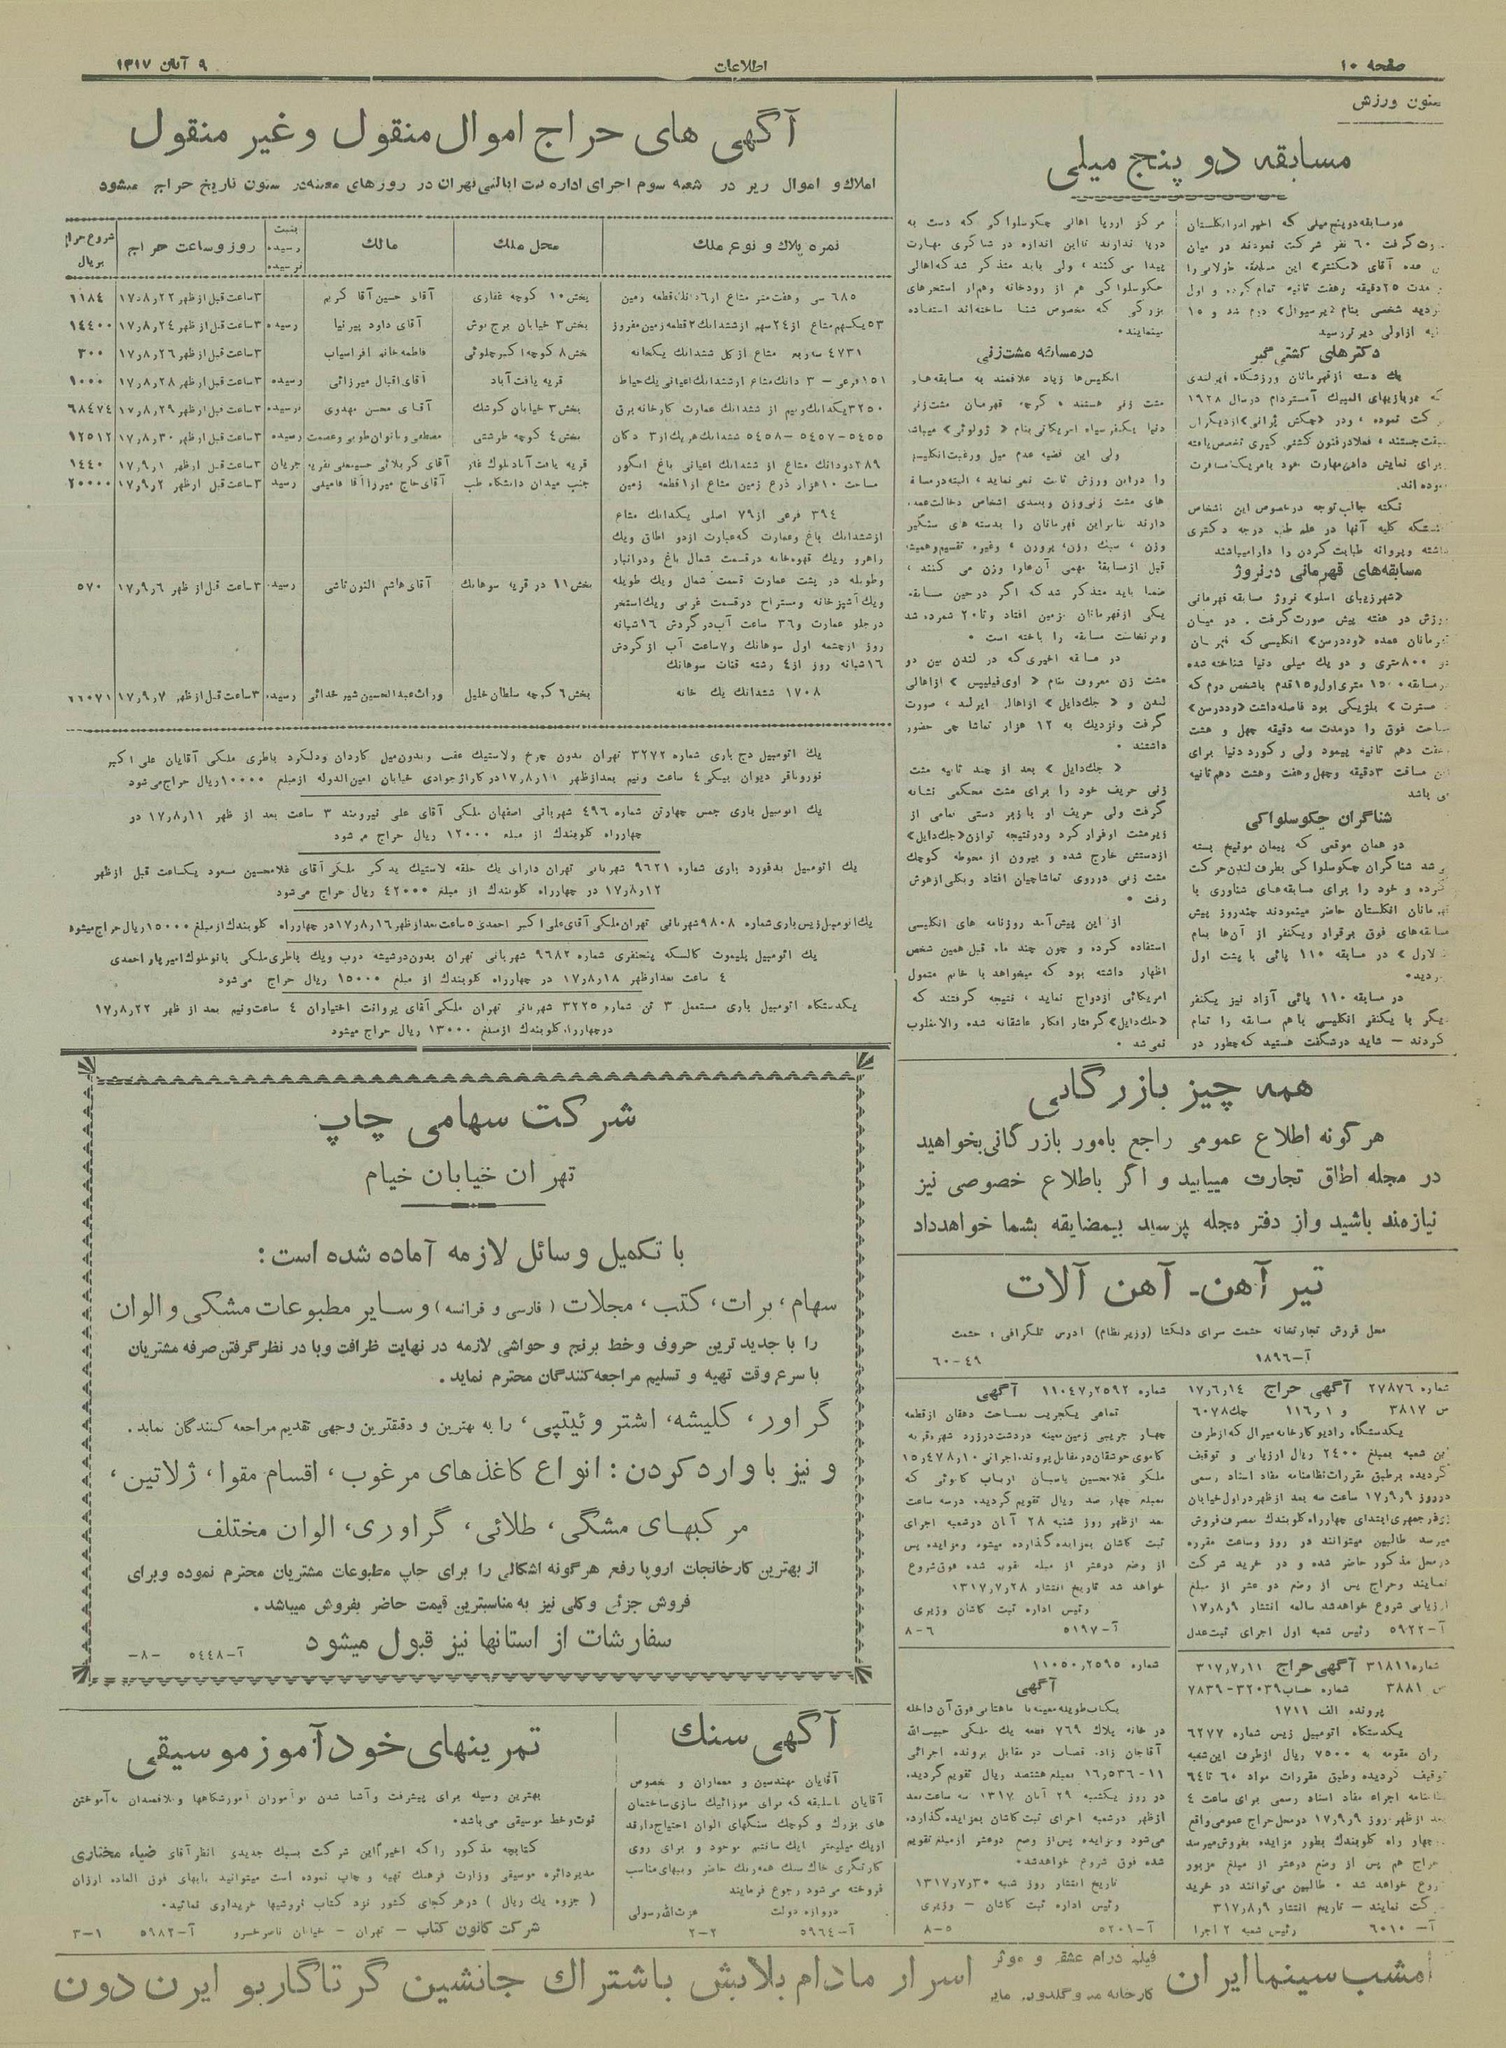 صفحه ۱۰
اطلاعات
۹ آبان ۱۳۱۷
ستون ورزش
مسابقه دو پنج میلی
در مسابقه دو پنج میلی که اخیرا در انگلستان
صورت گرفت ۶۰ نفر شرکت نمودند در میان
عده آقای «مکنتر» این مسابقه طولانی را
مدت ۲۵ دقیقه و هفت ثانیه تمام کرده و اول
گردید شخصی بنام «پرسیوال» دوم شد و ۱۵
ثانیه از اولی دیرتر رسید
دکترهای کشتی گیر
یک دسته از قهرمانان ورزشگاه ایرلندی
که در بازیهای المپیک آمستردام در سال ۱۹۲۸
شرکت نموده ، و در «چکش پرانی» از دیگران
سبقت جستند ، فعلا در فنون کشتی گیری تخصص یافته
برای نمایش دادن مهارت خود بامریک مسافرت
نموده اند.
نکته جالب توجه در خصوص این اشخاص
اینستکه کلیه آنها در علم طب درجه دکتری
داشته و پروانه طبابت کردن را دارا میباشند
مسابقه‌های قهرمانی در نروژ
«شهر زیبای اسلو» نروژ مسابقه قهرمانی
ورزش در هفته پیش صورت گرفت . در میان
قهرمانان عمده «وددرسن» انگلیسی که قهرمان
دو ۸۰۰ متری و دو یک میلی دنیا شناخته شده
در مسابقه ۱۵۰۰ متری اول و ۱۵ قدم باشخص دوم که
مسترت » بلژیکی بود فاصله داشت «وددرسن»
مساحت فوق را در مدت سه دقیقه چهل و هشت
هفت دهم ثانیه پیمود ولی رکورد دنیا برای
این مسافت ۳ دقیقه و چهل و هفت و هشت دهم ثانیه
می باشد
شناگران چکوسلواکی
در همان موقعی که پیمان موقع بسته
می شد شناگران چکوسلواکی بطرف لندن حرکت
کرده و خود را برای مسابقه‌های شناوری با
قهرمانان انگلستان حاضر مینمودند چند روز پیش
مسابقه‌های فوق برقرار و یکنفر از آن‌ها بنام
لارل » در مسابقه ۱۱۰ یائی با پشت اول
گردید.
در مسابقه ۱۱۰ یائی آزاد نیز یکنفر
دیگر با یکنفر انگلیسی باهم مسابقه را تمام
کردند – شاید در شگفت هستید که چطور در
مرکز اروپا اهالی چکوسلواکی که دست به
دریا ندارند تا این اندازه در شناگری مهارت
پیدا می کنند ، ولی باید متذکر شد که اهالی
چکوسلواکی هم از رودخانه و هم از استخرهای
بزرگی که مخصوص شنا ساخته‌اند استفاده
مینمایند.
در مسابقه مشت‌زنی
انگلیس‌ها زیاد علاقمند به مسابقه‌های
مشت زنی هستند ، گرچه قهرمان مشت‌زنی
دنیا یکنفر سیاه امریکائی بنام « ژولوئی» میباشد
ولی این قضیه عدم میل و رغبت انگلیسها
را در این ورزش ثابت نمی نماید ، البته در مسابقه
های مشت زنی وزن و بعدی اشخاص دخالت عمده
دارند بنابراین قهرمانان را بدسته های سنگین
وزن ، سبک وزن ، پروزن ، وغیره تقسیم و همیشه
قبل از مسابقه مهمی آن‌ها را وزن می کنند ،
ضمنا باید متذکر شد که اگر در حین مسابقه
یکی از قهرمانان بزمین افتاد و تا ۲۰ شمرده شد
و برنخاست مسابقه را باخته است .
در مسابقه اخیری که در لندن بین دو
مشت زن معروف بنام « اوی فیلیپس » از اهالی
لندن و « جک دایل » از اهالی ایرلند ، صورت
گرفت و نزدیک به ۱۲ هزار تماشا چی حضور
داشتند .
« جک دایل » بعد از چند ثانیه مشت
زنی حریف خود را برای مشت محکمی نشانه
گرفت ولی حریف او با زبر دستی تمامی از
زیر مشت او فرار کرد و در نتیجه توازن «جک دایل»
از دستش خارج شده و بیرون از محوطه کوچک
مشت زنی در روی تماشاچیان افتاد و بکلی از هوش
رفت .
از این پیش آمد روزنامه های انگلیسی
استفاده کرده و چون چند ماه قبل همین شخص
اظهار داشته بود که میخواهد با خانم متمول
امریکائی ازدواج نماید ، نتیجه گرفتند که
«جک دایل» گرفتار افکار عاشقانه شده والا مغلوب
نمی شد .
آگهی های حراج اموال منقول و غیر منقول
املاک و اموال زیر در شعبه سوم اجرای اداره ثبت ایالتی تهران در روزهای معینه در ستون تاریخ حراج میشود
نمره پلاک و نوع ملک | محل ملک | مالک | بثبت رسیده نرسیده | روز و ساعت حراج | شروع حراج بریال
۶۸۵ سی و هفت متر مشاع از ۶ دانک قطعه زمین | بخش ۱۰ کوچه غفاری | آقای حسین آقا کریم | ۳ ساعت قبل از ظهر ۱۷٫۸٫۲۲ | ۱۱۸۴
۵۳ یکسهم مشاع از ۲۴ سهم از ششدانک ۲ قطعه زمین مفروز | بخش ۳ خیابان برج نوش | آقای داود پیرنیا | رسیده | ۳ ساعت قبل از ظهر ۱۷٫۸٫۲۴ | ۱۴۴۰۰
۴۷۳۱ سه ربع مشاع از کل ششدانک یکخانه | بخش ۸ کوچه اکبر چلوئی | فاطمه خانم افراسیاب | ۳ ساعت قبل از ظهر ۱۷٫۸٫۲۶ | ۳۰۰
۱۵۱ فرعی – ۳ دانک مشاع از ششدانک اعیانی یک حیاط | قریه یافت آباد | آقای اقبال میرزائی | رسیده | ۳ ساعت قبل از ظهر ۱۷٫۸٫۲۸ | ۱۰۰۰
۳۲۵۰ یکدانک و نیم از ششدانک عمارت کارخانه برق | بخش ۳ خیابان کوشک | آقای محسن مهدوی | نرسیده | ۳ ساعت قبل از ظهر ۱۷٫۸٫۲۹ | ۶۸۴۷۴
۵۴۵۵–۵۴۵۷–۵۴۵۸ ششدانک هریک از ۳ دکان | بخش ۴ کوچه طرشتی | مصطفی و بانوان طوبی و عصمت | رسیده | ۳ ساعت قبل از ظهر ۱۷٫۸٫۳۰ | ۱۲۵۱۲
۲۸۹ دودانک مشاع از ششدانک اعیانی باغ انگور | قریه یافت آباد بلوک غار | آقای کربلائی حسینعلی | جریان | ۳ ساعت قبل از ظهر ۱۷٫۹٫۱ | ۱۴۴۰
مساحت ۱۰ هزار ذرع زمین مشاع از ۱ قطعه زمین | جنب میدان دانشگاه طب | آقای حاج میرزا آقا فامیلی | رسید | ۳ ساعت قبل از ظهر ۱۷٫۹٫۲ | ۲۰۰۰۰
۳۹۴ فرعی از ۷۹ اصلی یکدانک مشاع
از ششدانک باغ و عمارت که عبارت از دو اطاق و یک
راهرو و یک قهوه خانه در قسمت شمال باغ و دو انبار
و طویله در پشت عمارت قسمت شمال و یک طویله
و یک آشپزخانه و مستراح در قسمت غربی و یک استخر
در جلو عمارت و ۳۶ ساعت آب در گردش ۱۶ شبانه
روز از چشمه اول سوهانک و ۷ ساعت آب از گردش
۱۶ شبانه روز از ۴ رشته قنات سوهانک | بخش ۱۱ در قریه سوهانک | آقای هاشم التون تاشی | رسیده | ۳ ساعت قبل از ظهر ۱۷٫۹٫۶ | ۵۷۰
۱۷۰۸ ششدانک یک خانه | بخش ۶ کوچه سلطان خلیل | وراث عبدالحسین شیر خدائی | رسیده | ۳ ساعت قبل از ظهر ۱۷٫۹٫۷ | ۶۶۰۷۱
یک اتومبیل دج باری شماره ۳۲۷۲ تهران بدون چرخ ولاستیک عقب و بدون میل کاردان و دلکرد باطری ملکی آقایان علی اکبر
نوروباقر دیوان بیگی ۴ ساعت و نیم بعد از ظهر ۱۷٫۸٫۱۱ در کاراژ جوادی خیابان امین الدوله از مبلغ ۱۰۰۰۰ ریال حراج می‌شود
یک اتومبیل باری جمس چهارتن شماره ۴۹۶ شهربانی اصفهان ملکی آقای علی نیرومند ۳ ساعت بعد از ظهر ۱۷٫۸٫۱۱ در
چهارراه کلوبندک از مبلغ ۱۲۰۰۰ ریال حراج می شود
یک اتومبیل بدفورد باری شماره ۹۶۲۱ شهربانی تهران دارای یک حلقه لاستیک یدکی ملکی آقای غلامحسین مسعود یکساعت قبل از ظهر
۱۷٫۸٫۱۲ در چهارراه کلوبندک از مبلغ ۴۲۰۰۰ ریال حراج می‌شود
یک اتومبیل زیس باری شماره ۹۸۰۸ شهربانی تهران ملکی آقای علی اکبر احمدی ۵ ساعت بعد از ظهر ۱۷٫۸٫۱۶ در چهارراه کلوبندک از مبلغ ۱۵۰۰۰ ریال حراج میشود
یک اتومبیل پلیموت کالسکه پنجنفری شماره ۹۶۸۲ شهربانی تهران بدون دو شیشه درب و یک باطری ملکی بانو ملوک امیریار احمدی
۴ ساعت بعد از ظهر ۱۷٫۸٫۱۸ در چهارراه کلوبندک از مبلغ ۱۵۰۰۰ ریال حراج می‌شود
یکدستگاه اتومبیل باری مستعمل ۳ تن شماره ۳۲۲۵ شهربانی تهران ملکی آقای یروانت اختیاران ۴ ساعت و نیم بعد از ظهر ۱۷٫۸٫۲۲
در چهارراه کلوبندک از مبلغ ۱۳۰۰۰ ریال حراج میشود
همه چیز بازرگانی
هرگونه اطلاع عمومی راجع بامور بازرگانی بخواهید
در مجله اطاق تجارت مییابید و اگر باطلاع خصوصی نیز
نیازمند باشید و از دفتر مجله پرسید بیمضایقه بشما خواهد داد
تیر آهن – آهن آلات
محل فروش تجارتخانه حشمت سرای دلگشا (وزیر نظام) ادرس تلگرافی ، حشمت
آ–۱۸۹۶
۶۰–۴۹
شرکت سهامی چاپ
تهران خیابان خیام
با تکمیل وسائل لازمه آماده شده است:
سهام، برات، کتب، مجلات (فارسی و فرانسه) و سایر مطبوعات مشکی و الوان
را با جدید ترین حروف و خط برنج و حواشی لازمه در نهایت ظرافت و با در نظر گرفتن صرفه مشتریان
با سرع وقت تهیه و تسلیم مراجعه کنندگان محترم نماید.
گراور، کلیشه، اشتروئیتپی، را به بهترین و دقیقترین وجهی تقدیم مراجعه کنندگان نماید.
و نیز با وارد کردن: انواع کاغذهای مرغوب، اقسام مقوا، ژلاتین،
مرکبهای مشکی، طلائی، گراوری، الوان مختلف
از بهترین کارخانجات اروپا رفع هرگونه اشکالی را برای چاپ مطبوعات مشتریان محترم نموده وبرای
فروش جزئی وکلی نیز به مناسبترین قیمت حاضر بفروش میباشد.
سفارشات از استانها نیز قبول میشود
آ–۵۴۴۸
–۸–
شماره ۲۷۸۷۶ آگهی حراج ۱۷٫۶٫۱۴
س ۳۸۱۷ و ۱ ر ۱۱۶ چک ۶۰۷۸
یکدستگاه رادیو کارخانه میرال که از طرف
این شعبه بمبلغ ۲۴۰۰ ریال ارزیابی و توقیف
گردیده برطبق مقررات نظامنامه مفاد اسناد رسمی
در روز ۱۷٫۹٫۹ ساعت سه بعد از ظهر در اول خیابان
بوذرجمهری ابتدای چهارراه کلوبندک بمصرف فروش
میرسد طالبین میتوانند در روز و ساعت مقرره
در محل مذکور حاضر شده و در خرید شرکت
نمایند وحراج پس از وضع دو عشر از مبلغ
ارزیابی شروع خواهد شد سالمه انتشار ۱۷٫۸٫۹
آ–۵۹۲۲ رئیس شعبه اول اجرای ثبت عدل
شماره ۳۱۸۱۱ آگهی حراج ۳۱۷٫۷٫۱۱
س ۳۸۸۱ شماره حساب ۳۲۰۳۹–۷۸۳۹
پرونده الف ۱۷۱۱
یکدستگاه اتومبیل زیس شماره ۶۲۷۷
تهران مقومه به ۷۵۰۰ ریال از طرف این شعبه
توقیف گردیده وطبق مقررات مواد ۶۰ تا ۶۴
نظامنامه اجراء مفاد اسناد رسمی برای ساعت ۴
بعد از ظهر روز ۱۷٫۹٫۹ در محل حراج عمومی واقع
چهار راه کلوبندک بطور مزایده بفروش میرسد
حراج هم پس از وضع دو عشر از مبلغ مزبور
شروع خواهد شد . طالبین می‌توانند در خرید
شرکت نمایند – تاریخ انتشار ۳۱۷٫۸٫۹
آ– ۶۰۱۰ رئیس شعبه ۲ اجرا
شماره ۱۱۰۴۷٫۲۵۹۲ آگهی
تمامی یکجریب بمساحت دهقان از قطعه
چهار جریبی زمین معینه در دشت درزرد شهر قریه
کاموی جوشقان در مقابل پرونده اجرائی ۱۵٫۴۷۸٫۱۰
ملکی غلامحسین پاسبان ارباب کاموئی که
بمبلغ چهار صد ریال تقویم گردیده در سه ساعت
بعد از ظهر روز شنبه ۲۸ آبان در شعبه اجرای
ثبت کاشان بمزایده گذارده میشود و مزایده پس
از وضع دو عشر از مبلغ تقویم شده فوق شروع
خواهد شد تاریخ انتشار ۱۳۱۷٫۷٫۲۸
رئیس اداره ثبت کاشان وزیری
آ–۵۱۹۷
۸–۶
شماره ۱۱۰۵۰٫۲۵۹۵
آگهی
یکباب طویله معینه با ماهتابی فوق آن داخله
در خانه پلاک ۷۶۹ قطعه یک ملکی حبیب الله
آقاجان زاده قصاب در مقابل پرونده اجرائی
۱۱–۱۶٫۵۳۶ بمبلغ هشتصد ریال تقویم گردیده
در روز یکشنبه ۲۹ آبان ۱۳۱۷ سه ساعت بعد
از ظهر در شعبه اجرای ثبت کاشان بمزایده گذارده
می‌شود و مزایده پس از وضع دو عشر از مبلغ تقویم
شده فوق شروع خواهد شد.
تاریخ انتشار روز شنبه ۱۳۱۷٫۷٫۳۰
رئیس اداره ثبت کاشان – وزیری
آ–۵۲۰۱
۸–۵
آگهی سنک
آقایان مهندسین و معماران و بخصوص
آقایان با سلیقه که برای موزائیک سازی ساختمان
های بزرگ و کوچک سنگهای الوان احتیاج دارند
از یک میلیمتر الی یک سانتیم موجود و برای روی
کارتگری خاک سنک همه رنک حاضر و ببهای مناسب
فروخته می‌شود رجوع فرمایند
دروازه دولت
عزت‌الله رسولی
آ–۵۹۶۴
۲–۲
تمرینهای خودآموز موسیقی
بهترین وسیله برای پیشرفت و آشنا شدن نوآموزان آموزشگاهها و علاقمندان به آموختن
نوت وخط موسیقی می باشد.
کتابچه مذکور را که اخیراً این شرکت بسبک جدیدی از نظر آقای ضیاء مختاری
مدیر دائره موسیقی وزارت فرهنک تهیه و چاپ نموده است میتوانید ببهای فوق العاده ارزان
( جزوه یک ریال ) در هر کجای کشور نزد کتاب فروشیها خریداری نمائید.
شرکت کانون کتاب – تهران – خیابان ناصرخسرو
آ–۵۹۸۲
۳–۱
امشب سینما ایران
فیلم درام عشقی و موثر
کارخانه مترو گلدوین مایر
اسرار مادام بلانش باشتراک جانشین گرتاگاربو ایرن دون